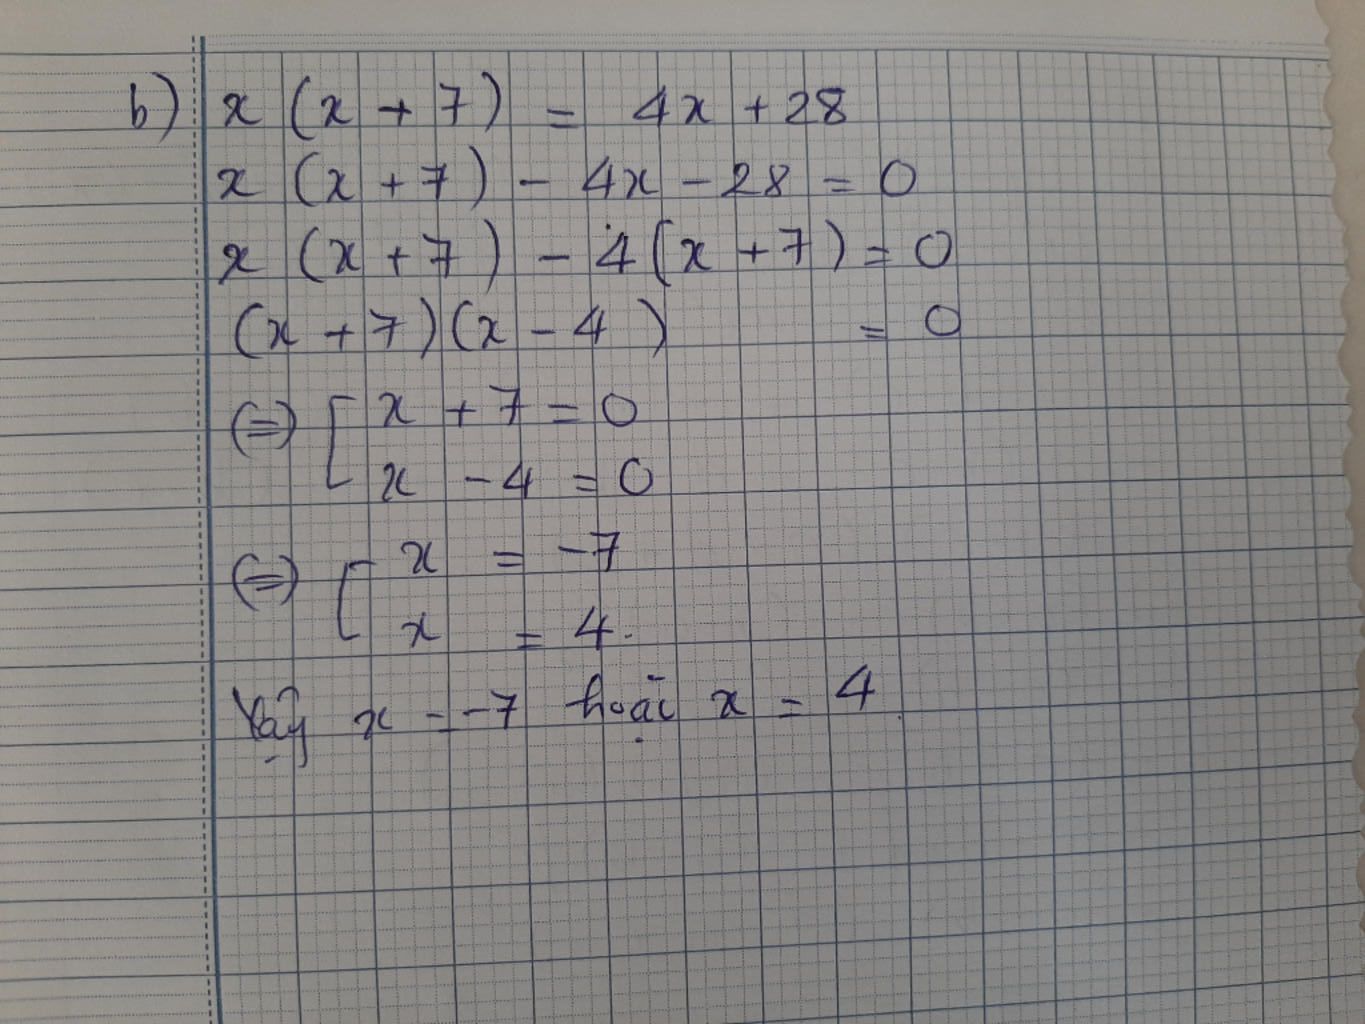 b) x (x + 7) = 4x + 28
x (x + 7) - 4x - 28 = 0
x (x + 7) - 4 (x + 7) = 0
(x + 7) (x - 4) = 0
(=) [ x + 7 = 0
x - 4 = 0
(=) [ x = -7
x = 4.
Vậy x = -7 hoặc x = 4.